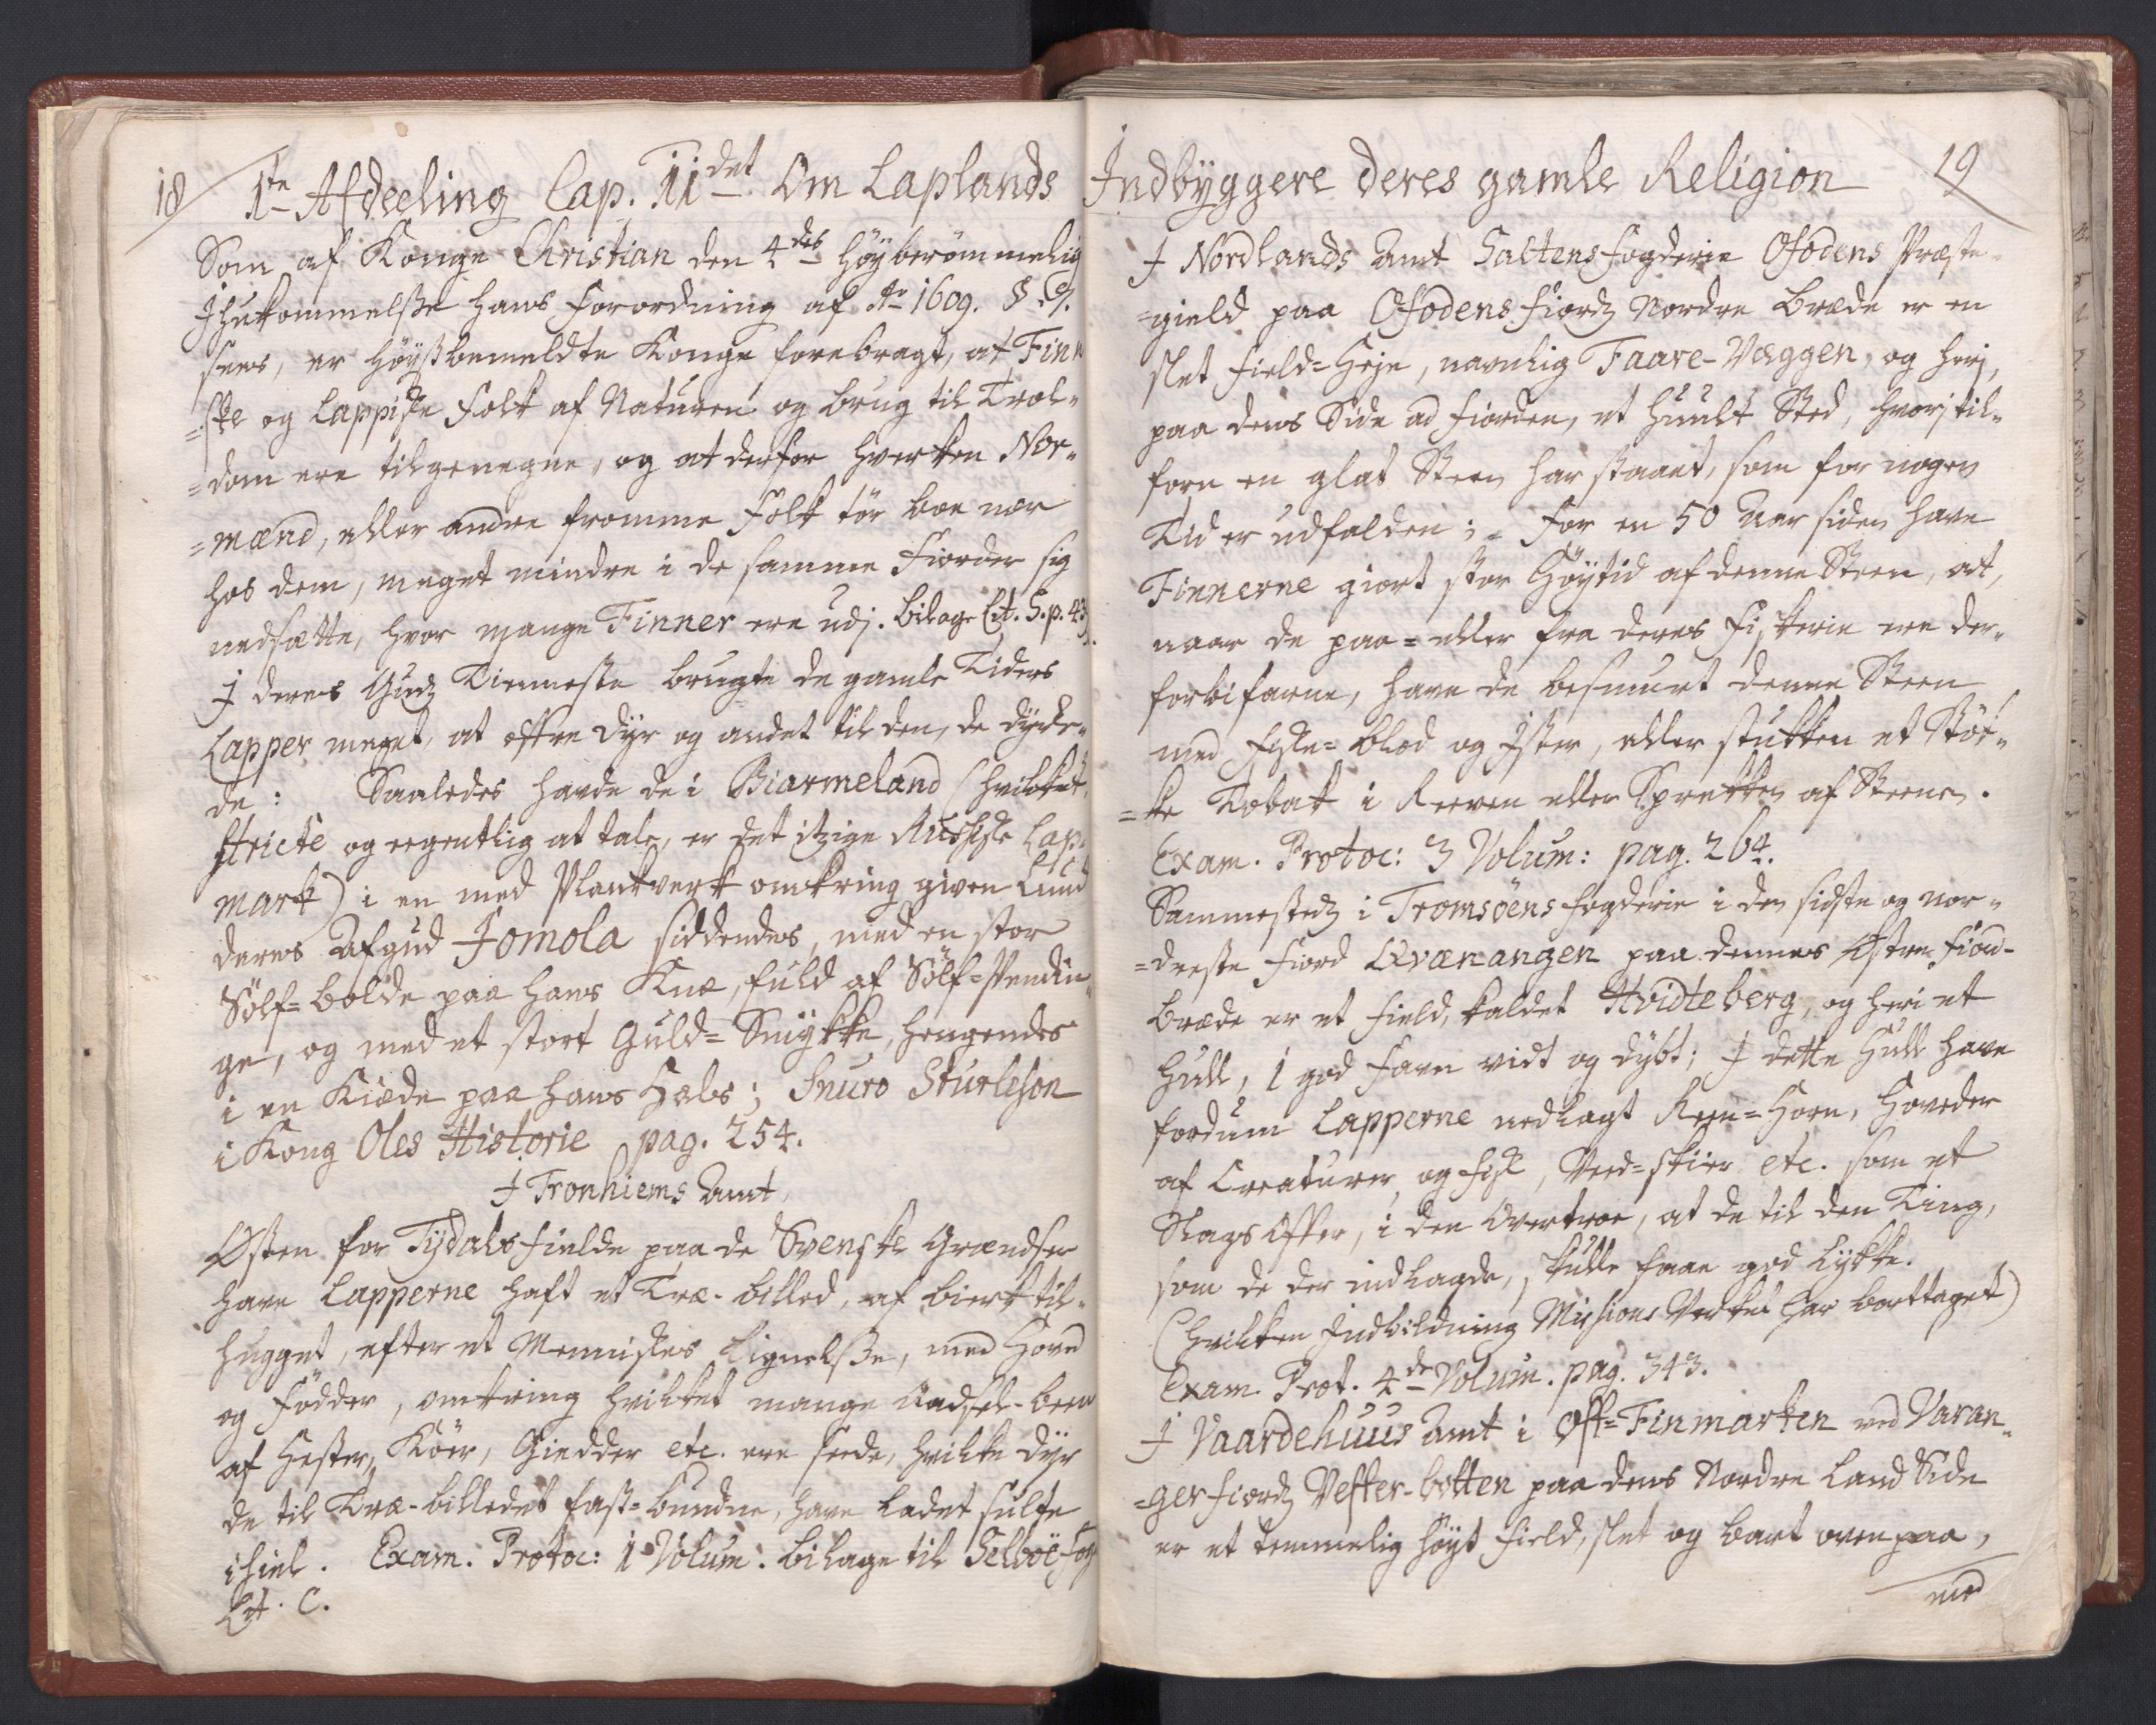 18
1te Afdeeling Cap. 11det Om Laplands
Som af Konge Christian den 4des Høyberømmelig
Ihukommelse hans Forordning af Ao 1609.
sees, er Høystbemeldte Konge forebragt, at Fin
=ske og Lappiske Folk af Naturen og brug til Trol=
=dom ere tilgenegne, og at derfor hverken Nor=
=mænd, eller andre fromme Folk tør boe nær
hos dem, meget mindre i de samme Fiorder sig
nedsætte, hvor mange Finner ere udj. Bilage Lit. S. p. 43.
I deres Gudz Tienneste brugte de gamle Tiders
Lapper meget, at offre dyr og andet til den, de dyrke=
de: Saaledes havde de i Biarmeland (hvilket,
stricte og egentlig at tale, er det itzige Russiske Lap=
mark) i en med Plankverk omkring given Lund
deres Afgud Jomola siddendes, med en stor
Sølf=bolde paa hans Knæ, fuld af Sølf=Pendin=
ge, og med et stort Guld=Smykke, hengendes
i en Kiæde paa hans Hals; Snuro Sturleson
i Kong Oles Historie pag. 254.
I Tronhiems Amt,
Østen for Tydals fielde paa de Svenske Grændser
have Lapperne haft et Træ-billed, af birk til=
hugget, efter et Menniskes Lignelse, med Hoved
og Fødder, omkring hvilket mange Aadsel-been
af Hester, Kiør, Giedder etc. ere seede, hvilke dyr
de til Træ-billedet fast=bundne, have ladet sulte
ihiel. Exam. Protoc: 1 Volum. bilage til Selboe Fog
Lit. C.
Indbyggere deres gamle Religion
19
I Nordlands Amt Saltens fogderie Ofodens Præste=
=gield paa Ofodens fiordz Nordre Brede er en
slet field=Heje, navnlig Faare-Væggen, og herj,
paa dens Side ad fiorden, et huult Sted, hvorj til=
forn en glat Steen har staaet, som for nogen
Tid er udfalden; For en 50 Aar siden have
Finnerne giort stor Høytid af denne Steen, at,
naar de paa= eller fra deres Fiskerie ere der=
forbifarne, have de besmurt denne Steen
med Fiske=blod og Ister, eller stukken et Støk=
=ke Tobak i Reeven eller Sprekken af Steenen.
Exam. Protoc: 3 Volum: pag. 264.
Sammestedz i Tromsöens fogderie i den sidste og nor=
=dreste Fiord Qvænangen paa dennes Østre fiord=
brede er et field, kaldet Hvidteberg, og heri et
Hull, 1 god Favn vidt og dybt; I dette Hull have
fordum Lapperne nedlagt Reen=Horn, Hoveder
af Creaturer og fisk, Veed=skier etc. som et
Slags Offer, i den Overtroe, at de til den Ting,
som de der indlagde, skulle faae god Lykke.
(hvilken Indbildning Missions Verket har borttaget)
Exam. Prot. 4de Volum. pag. 343.
I Vaardehuus Amt i Øst=Finmarken ved Varan=
=gerfiordz Vester-botten paa dens Nordre Land Side
er et temmelig høyt field, slet og bart ovenpaa,
med